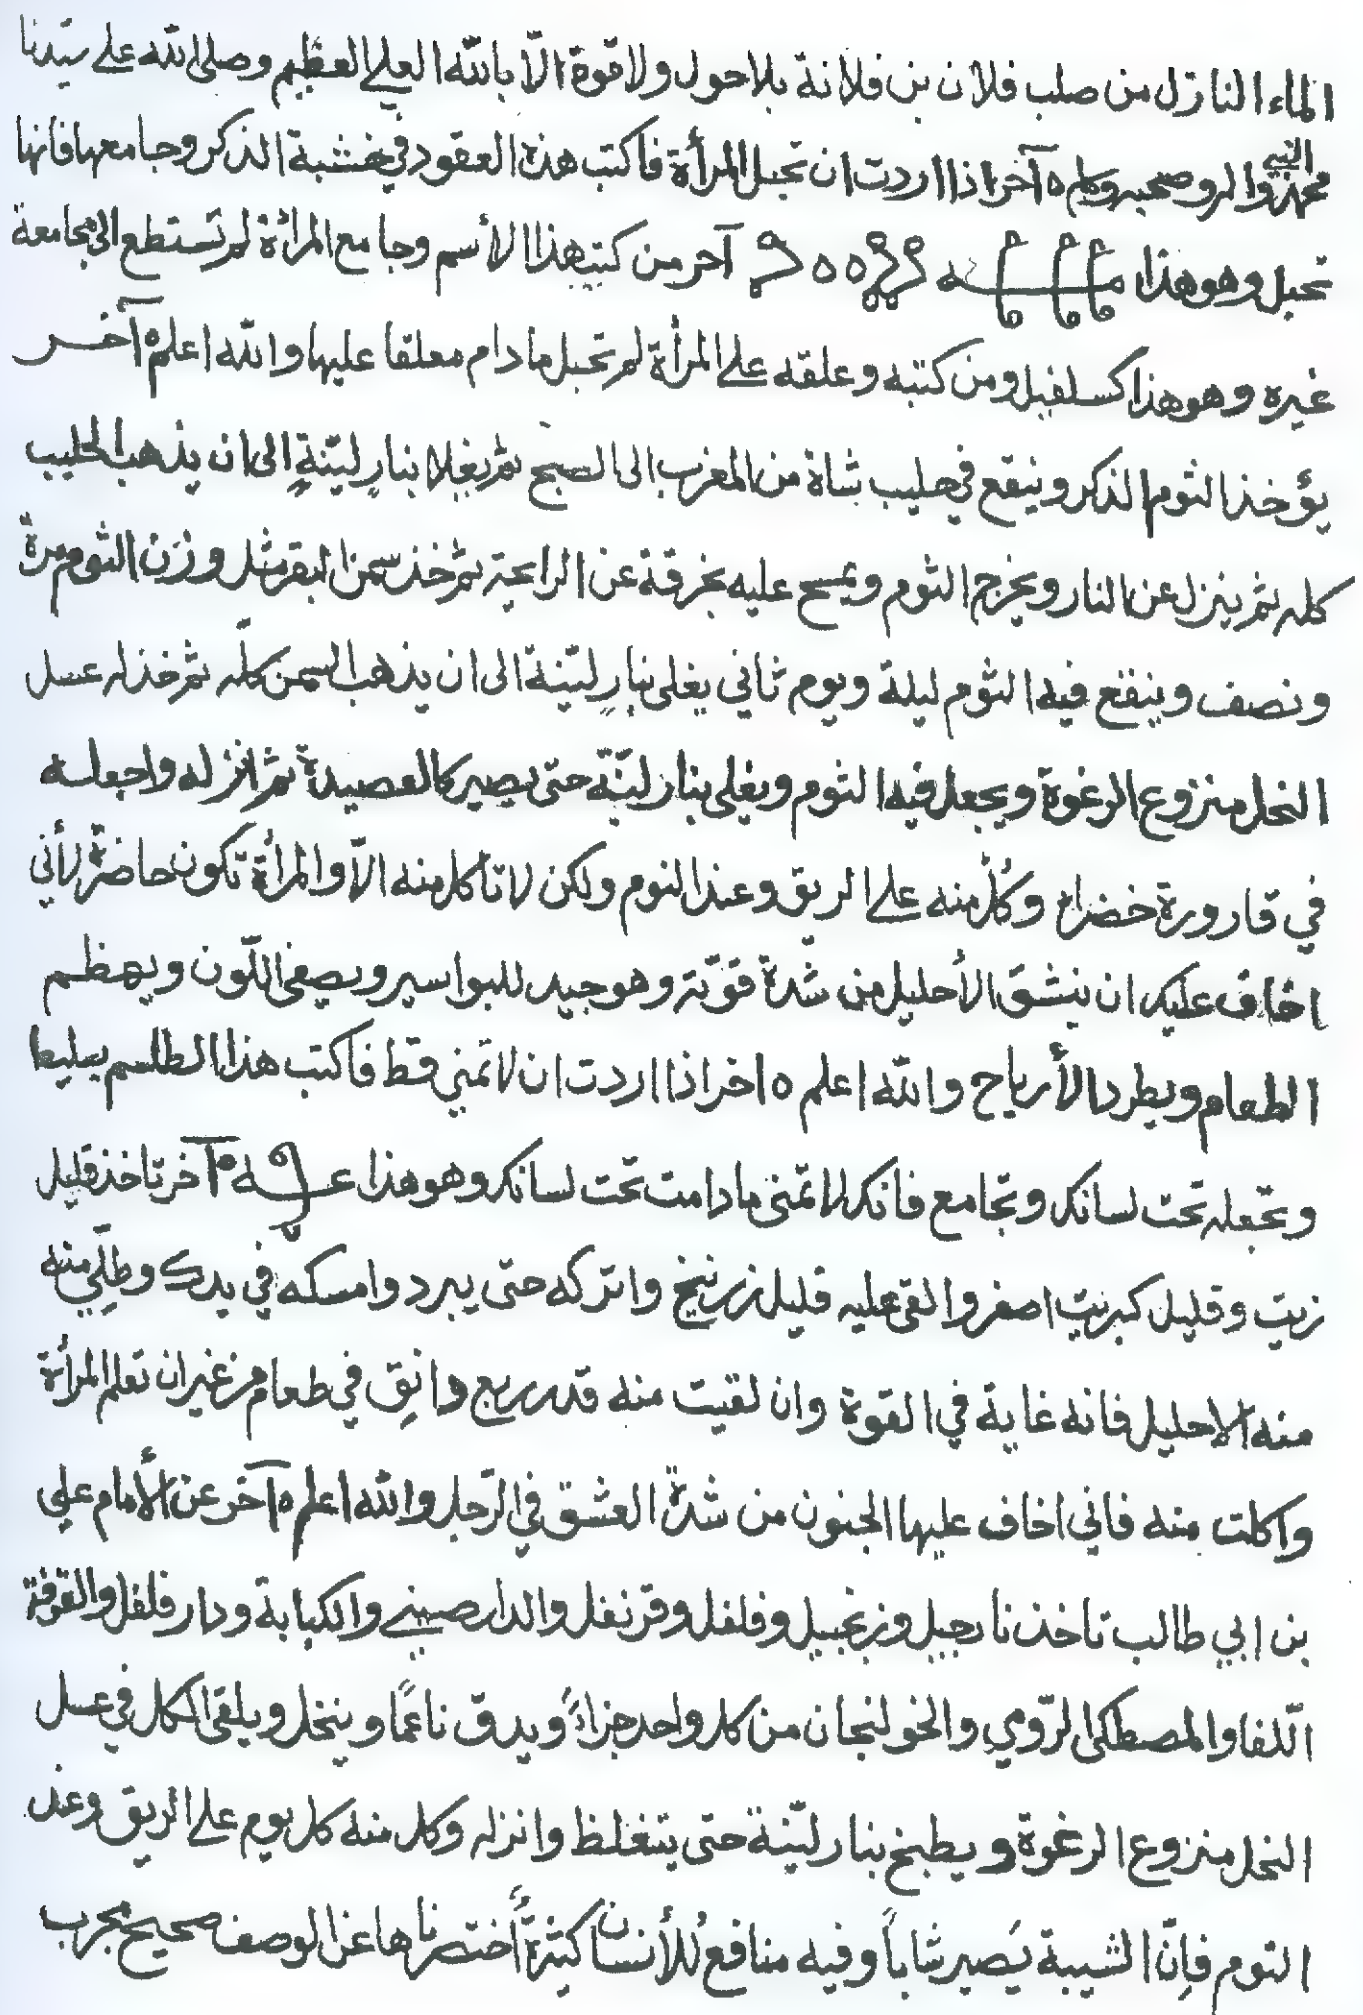 الماء النازل من صلب فلان بن فلانة بلا حول ولا قوة الّا بالله العلي العظيم وصلى الله على سيّدنا
محمد النبي وآله وصحبه وسلم ه آخر اذا اردت ان تحبل المرأة فاكتب هذه العقود في خشبة الذكر وجامعها فانها
تحبل وهو هذا آخر من كتب هذا الأسم وجامع المرأة لم تستطع الى مجامعة
غيره وهو هذا كسلفيل ومن كتبه وعلقه على المرأة لم تحبل ما دام معلقا عليها والله اعلم ه آخر
يؤخذ الثوم الذكر وينقع في حليب شاة من المغرب الى الصبح ثم يغلا بنارٍ ليّنةٍ الى ان يذهب الحليب
كله ثم ينزل عن النار ويخرج الثوم ويمسح عليه بخرقة عن الرايحة ثم خذ سمن البقر مثل وزن الثوم مرة
ونصف وينقع فيه الثوم ليلة ويوم ثاني يغلى بنارٍ ليّنة الى ان يذهب السمن كلّه ثم خذ له عسل
النحل منزوع الرغوة ويجعل فيه الثوم ويغلى بنار ليّنة حتى يصير كالعصيدة ثم انزله واجعله
في قارورة خضراء وكُلّ منه على الريق وعند النوم ولكن لا تأكل منه الّا والمرأة تكون حاضرة لأني
اخاف عليك ان ينشق الأحليل من شدة قوّته وهو جيد للبواسير ويصفى اللّون ويهظم
الطعام ويطرد الأرياح والله اعلم ه اخر اذا اردت ان لا تمني قط فاكتب هذا الطلسم بليط
وتجعله تحت لسانك وتجامع فأنك لا تمنى ما دامت تحت لسانك وهو هذا آخر تاخذ قليل
زيت وقليل كبريت اصفر والقى عليه قليل زرنيخ واتركه حتى يبرد وامسكه في يدك وطلّي منه
منه الاحليل فانه غاية في القوة وان لقيت منه قدر ربع دانِق في طعام من غير ان تعلم المرأة
واكلت منه فاني اخاف عليها الجنون من شدة العشق في الرّجل والله اعلم ه آخر عن الأمام علي
بن ابي طالب تاخذ نارجيل وزنجبيل وفلفل وقرنفل والدارصيني والكبابة ودار فلفل والقرفة
اللفا والمصطكى الرّومي والخولنجان من كل واحد جزاءً ويدق ناعمًا وينخل ويلقى الكل في عسل
النحل منزوع الرغوة ويطبخ بنار ليّنة حتى يتغلظ وانزله وكل منه كل يوم على الريق وعند
النوم فإنّ الشيبة يَصير شاباً وفيه منافع للأنسان كثيرةً أختصرناها عن الوصف صحيح مجرب